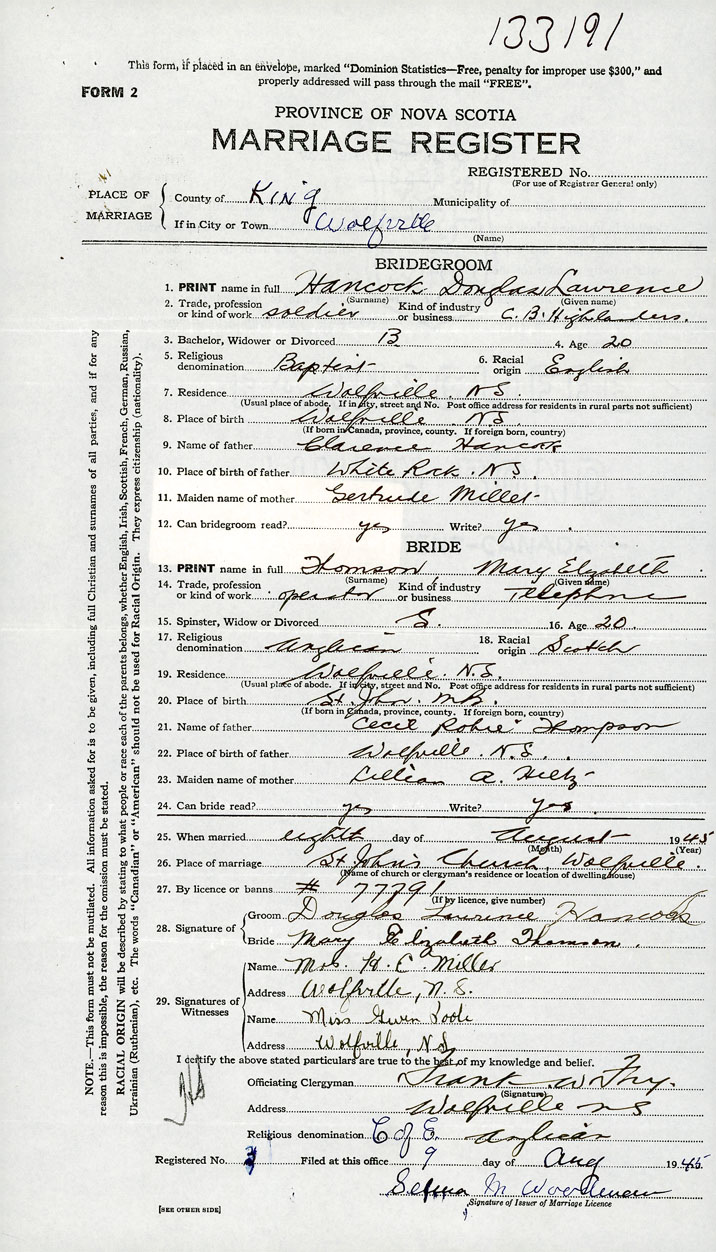 133191
This form, if placed in an envelope, marked "Dominion Statistics—Free, penalty for improper use $300," and
properly addressed will pass through the mail "FREE".
FORM 2
PROVINCE OF NOVA SCOTIA
MARRIAGE REGISTER
REGISTERED No.
(For use of Registrar General only)
PLACE OF MARRIAGE
County of King Municipality of
If in City or Town Wolfville
(Name)
BRIDEGROOM
1. PRINT name in full Hancock Douglas Lawrence
(Surname) (Given name)
2. Trade, profession or kind of work soldier Kind of industry or business C. B. Highlanders.
3. Bachelor, Widower or Divorced B 4. Age 20
5. Religious denomination Baptist 6. Racial origin English
7. Residence Wolfville. N.S.
(Usual place of abode. If in city, street and No. Post office address for residents in rural parts not sufficient)
8. Place of birth Wolfville N.S.
(If born in Canada, province, county. If foreign born, country)
9. Name of father Clarence Hancock
10. Place of birth of father White Rock. N.S.
11. Maiden name of mother Gertrude Millet
12. Can bridegroom read? yes Write? yes.
BRIDE
13. PRINT name in full Thomson Mary Elizabeth
(Surname) (Given name)
14. Trade, profession or kind of work operator Kind of industry or business Telephone
15. Spinster, Widow or Divorced S. 16. Age 20
17. Religious denomination Anglican 18. Racial origin Scotch
19. Residence Wolfville. N.S.
(Usual place of abode. If in city, street and No. Post office address for residents in rural parts not sufficient)
20. Place of birth St. John. N.B.
(If born in Canada, province, county. If foreign born, country)
21. Name of father Cecil Robie Thompson
22. Place of birth of father Wolfville. N.S.
23. Maiden name of mother Lillian A. Hiltz
24. Can bride read? yes Write? yes
25. When married eighth day of August 1945
(Month) (Year)
26. Place of marriage St John's Church, Wolfville.
(Name of church or clergyman's residence or location of dwelling house)
27. By licence or banns # 77791
(If by licence, give number)
28. Signature of
Groom Douglas Lawrence Hancock
Bride Mary Elizabeth Thomson.
29. Signatures of Witnesses
Name Mrs. H. C. Miller
Address Wolfville, N.S.
Name Miss Gwen
Address Wolfville, N.S.
I certify the above stated particulars are true to the best of my knowledge and belief.
Officiating Clergyman Frank W Fry.
(Signature)
Address Wolfville NS
Religious denomination C of E. Anglican
Registered No. Filed at this office 9 day of Aug 1945
Selma M Woodman
Signature of Issuer of Marriage Licence
[SEE OTHER SIDE]
NOTE.—This form must not be mutilated. All information asked for is to be given, including full Christian and surnames of all parties, and if for any
reason this is impossible, the reason for the omission must be stated.
RACIAL ORIGIN will be described by stating to what people or race each of the parents belongs, whether English, Irish, Scottish, French, German, Russian,
Ukrainian (Ruthenian), etc. The words "Canadian" or "American" should not be used for Racial Origin. They express citizenship (nationality).